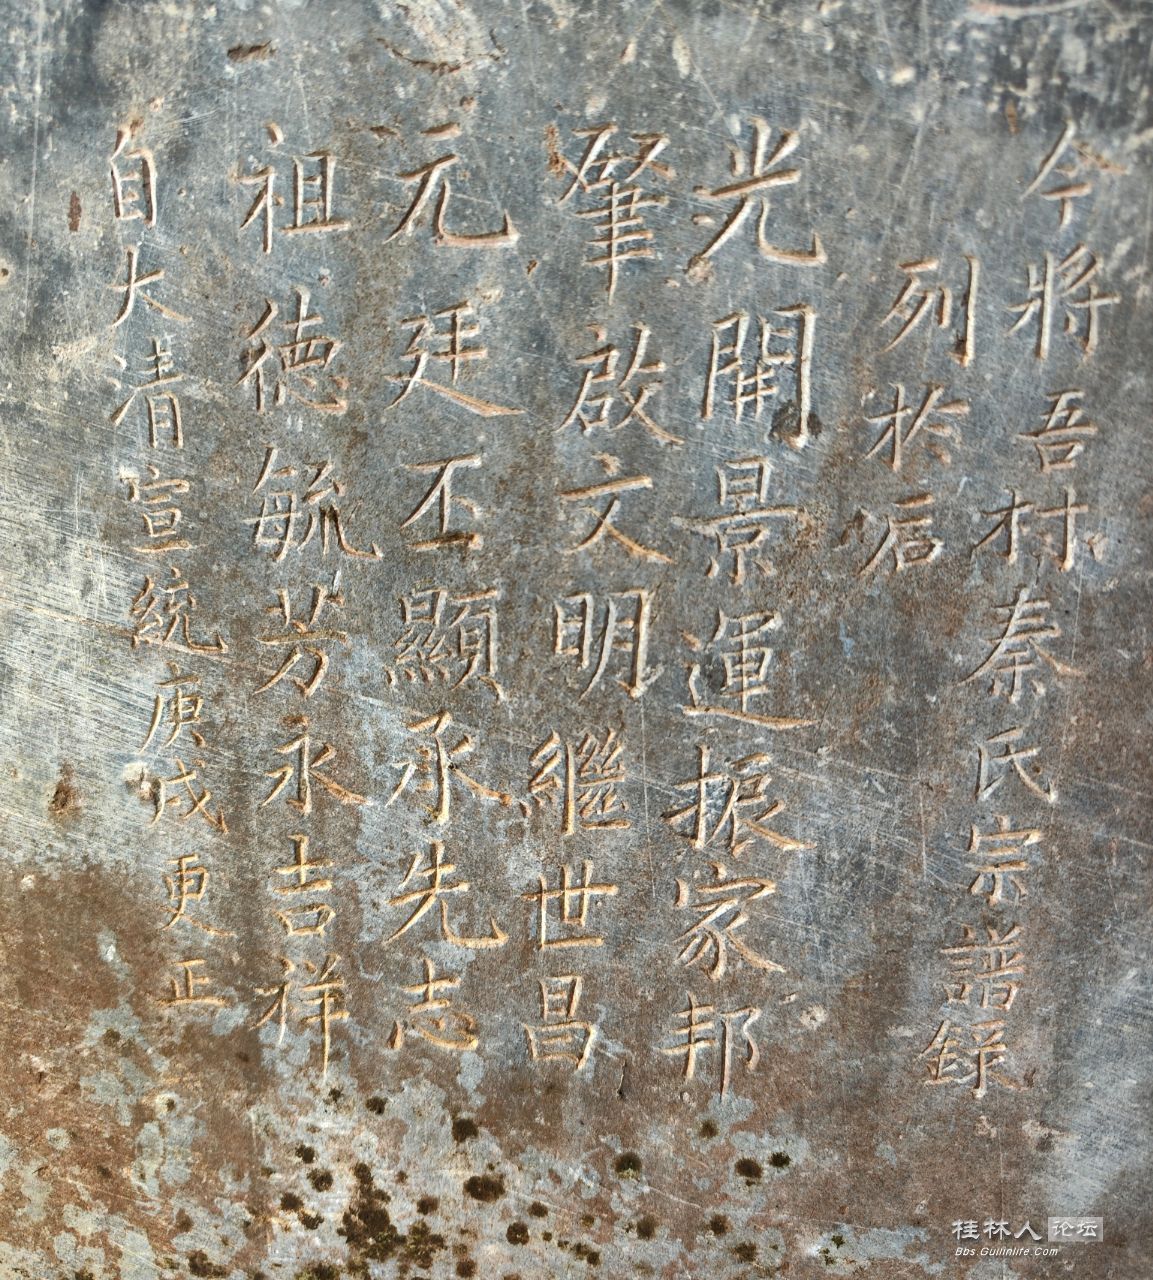 今將吾村秦氏宗譜錄
列於后
光開景運振家邦
肇啟文明繼世昌
元廷丕顯承先志
祖德毓芳永吉祥
自大清宣統庚戌更正
桂林人论坛
Bbs.Guilinlife.Com